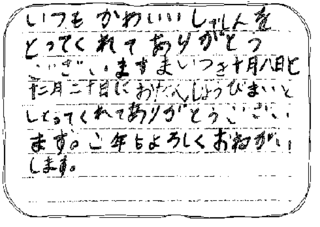 いつもかわいいしゃしんを
とってくれてありがとう
ございますまいつき十月八日と
十二月二十日におたんじょうびまいと
しとってくれてありがとうござい
ます。こ年もよろしくおねがい
します。